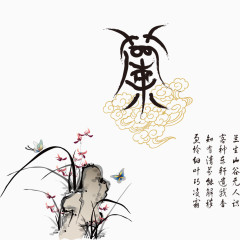 兰生山谷无人识
客种东轩遗我香
知有清芬能解秽
更怜细叶巧凌霜